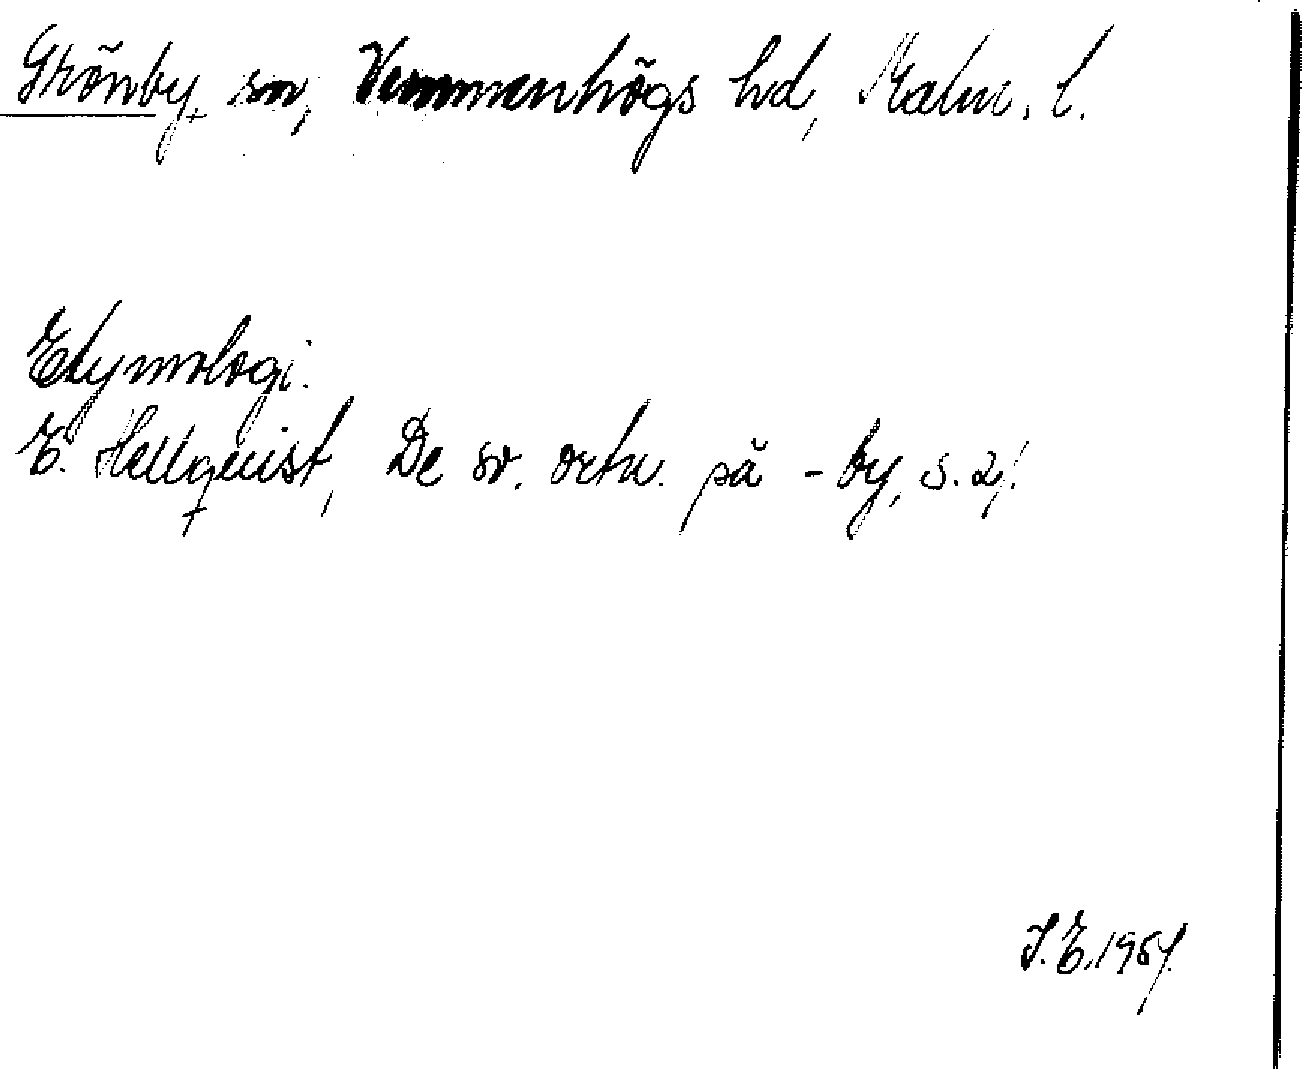 Grönby, sn, Vemmenhögs hd, Malm. l.
Etymologi.
E. Hellquist, De sv. ortn. på -by, s. 21.
I. E. 1951.